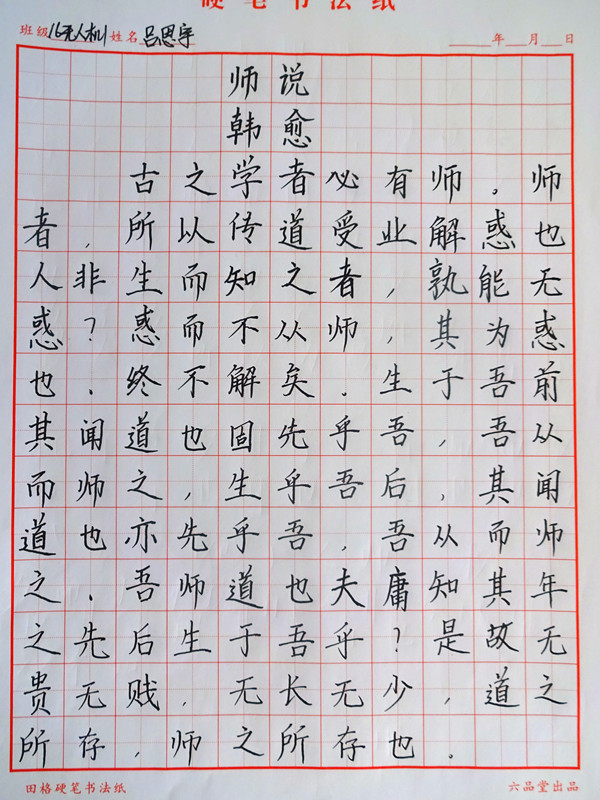 硬笔书法纸
班级 16无人机1 姓名 吕思宇 年 月 日
师说
韩愈
古之学者必有师。师
者,所以传道受业解惑也
人非生而知之者,孰能无
惑?惑而不从师,其为惑
也,终不解矣.生于吾前
其闻道也固先乎吾,吾从
而师之,生乎吾后,其闻
道也亦先乎吾,吾从而师
之.吾师道也夫庸知其年
之先后生于吾乎?是故无
贵无贱,无长无少,道之
所存,师之所存也.
田格硬笔书法纸 六品堂出品